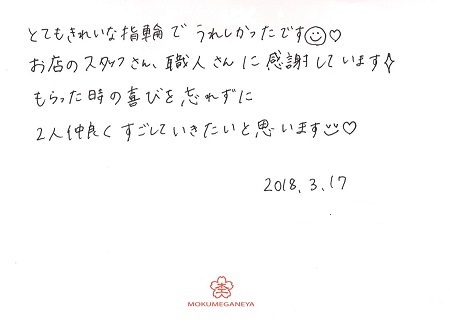 とてもきれいな指輪で うれしかったです☺♡
お店のスタッフさん、職人さんに感謝しています✧
もらった時の喜びを忘れずに
2人仲良くすごしていきたいと思います☺♡
2018.3.17
MOKUMEGANEYA